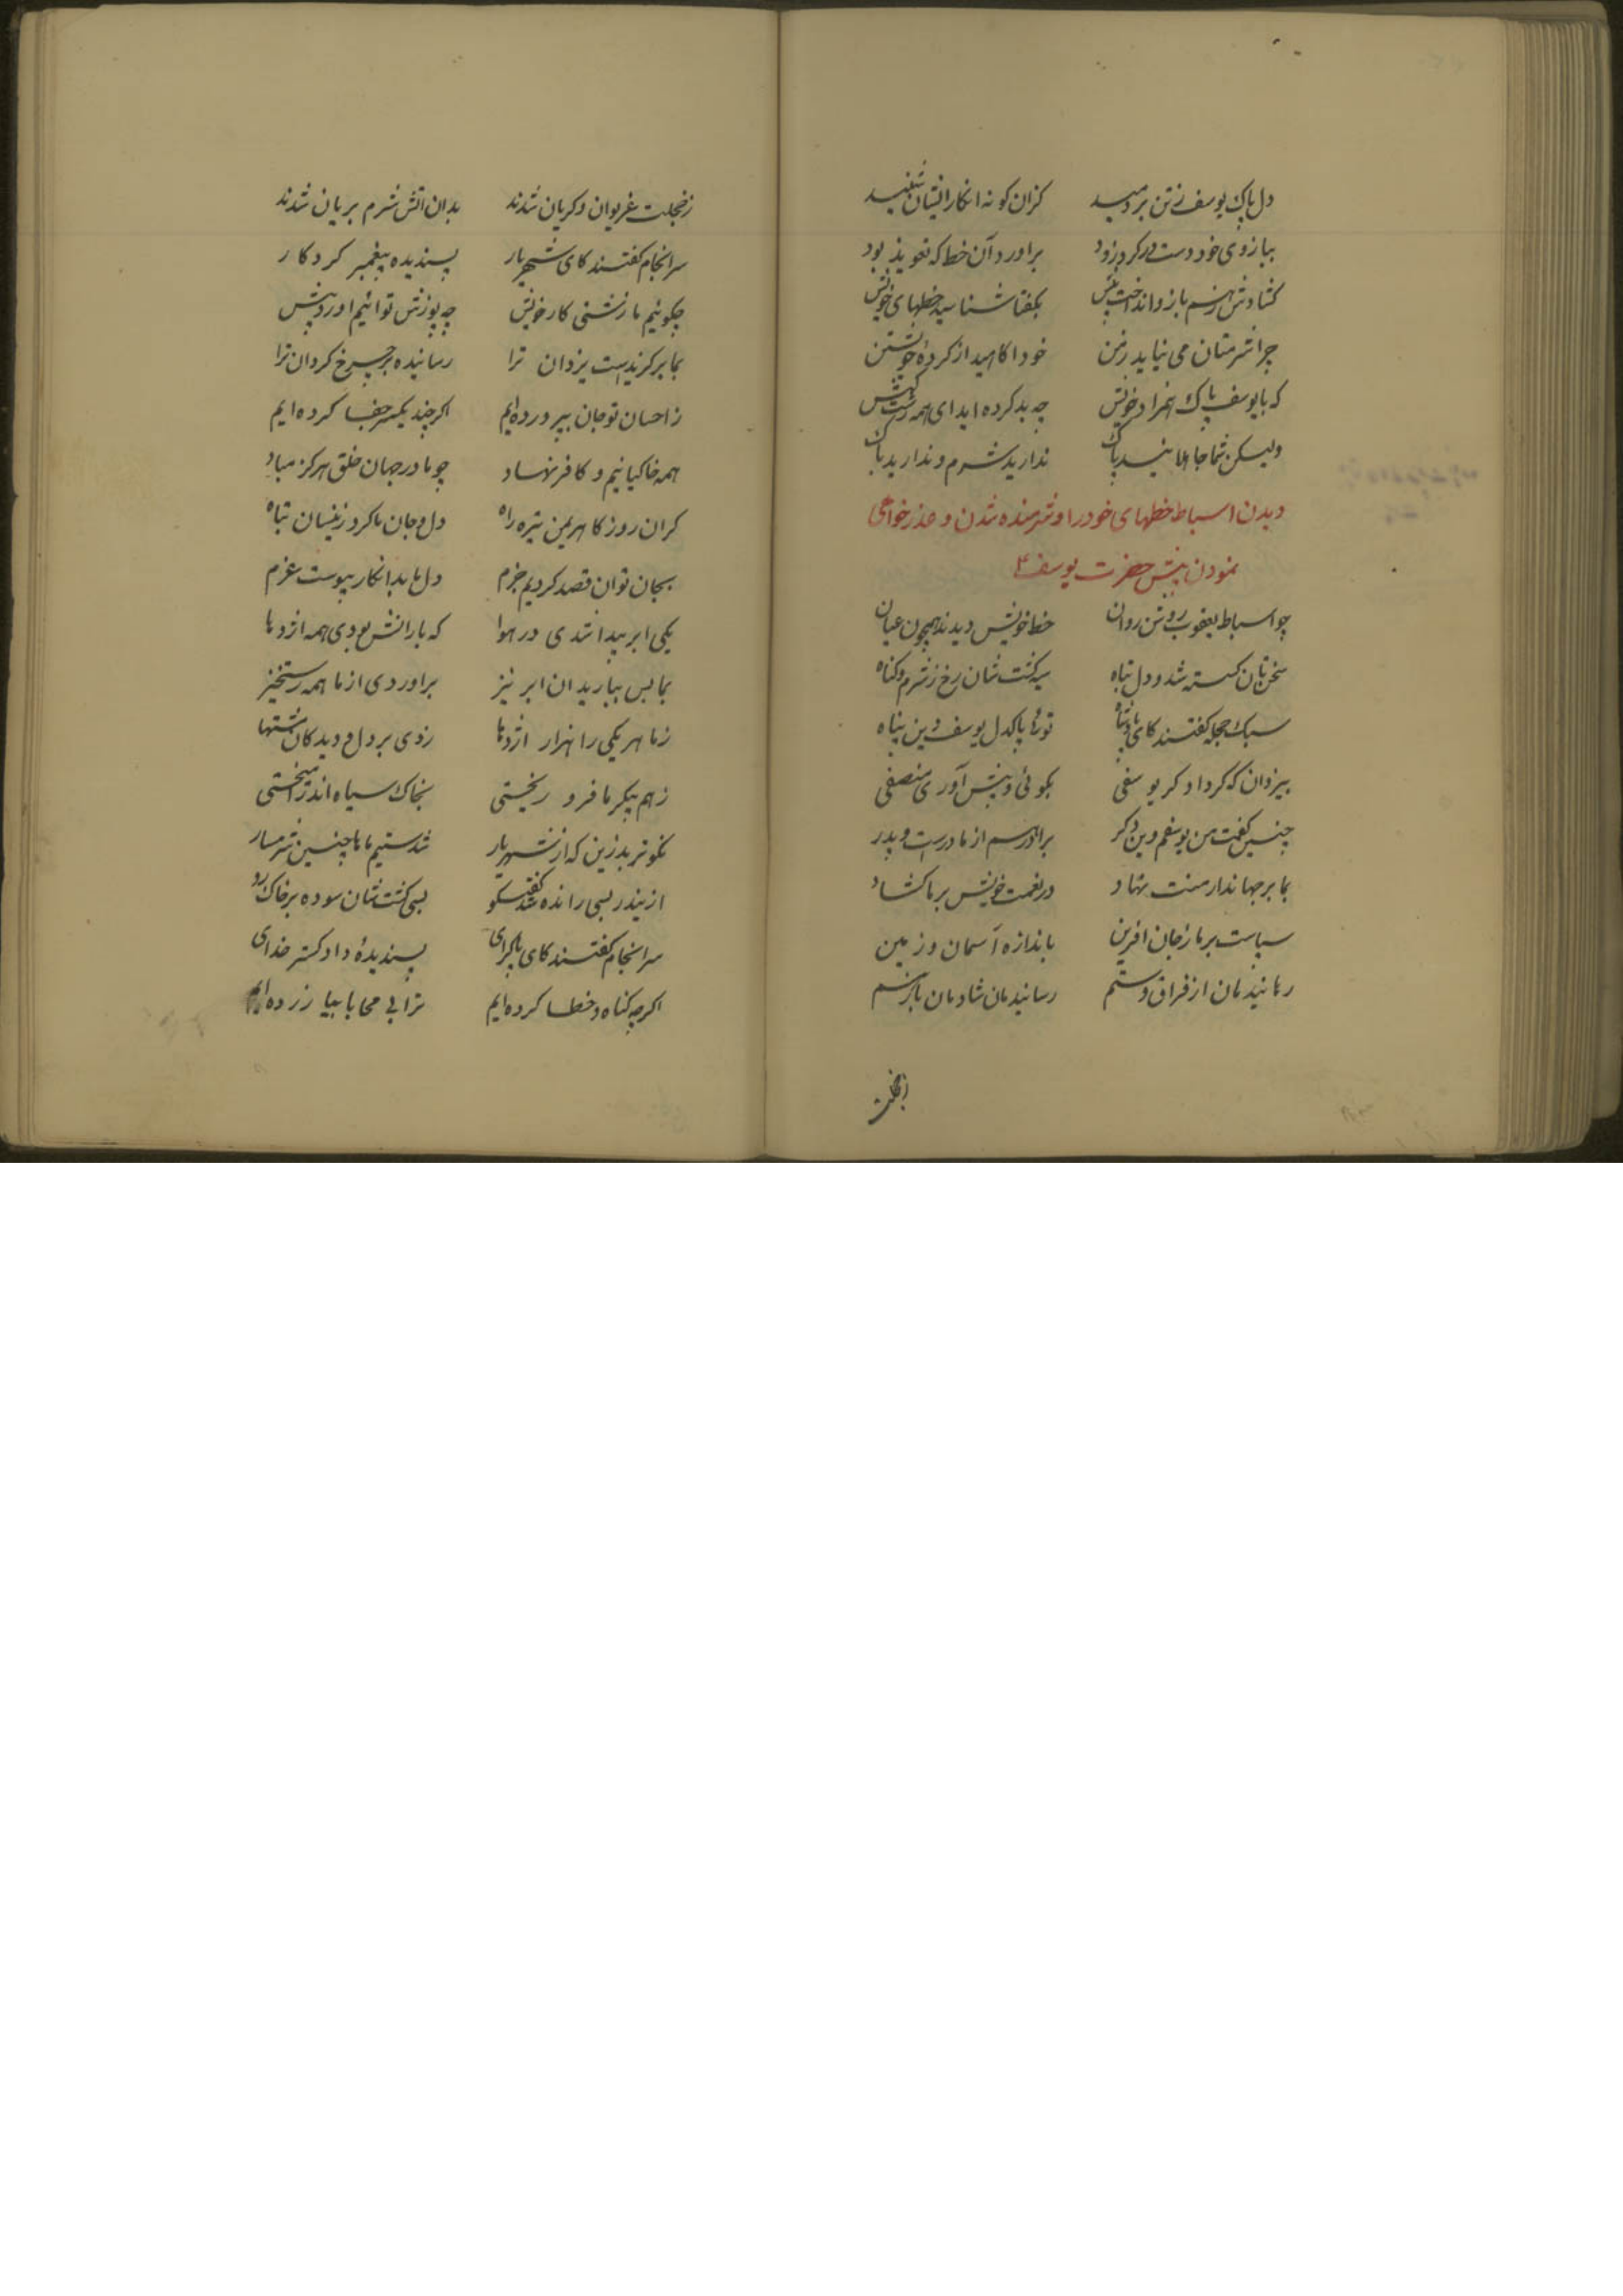 دل پاک یوسف ز تن بر دمید کزان کونه انکار ایشان شنید
ببازوی خود دست در کرد زود براورد آن خط که تعویذ بود
کشادش ز هم باز و انداخت پیش بکفتا شناسید خطهای خویش
چرا شرمتان می نیاید ز من خود اکاهید از کردهٔ خویشتن
که با یوسف پاک همزاد خویش چه بد کرده اید ای همه زشت کیش
ولیکن شما جاهلانید پاک ندارید شرم و ندارید باک
دیدن اسباط خطهای خود را و شرمنده شدن و عذر خواهی
نمودن پیش حضرت یوسف ع
چو اسباط یعقوب روشن روان خط خویش دیدند همچون عیان
سخن شان کسسته شد و دل تباه سیه کشت شان رخ ز شرم و کناه
سبک جمله کفتند کای پادشاه توئی پاکدل یوسف دین پناه
بیزدان که کر داد کر یوسفی بکوئی و پیش آوری منصفی
چنین کفت من یوسفم وین دکر برادرم از مادرست و پدر
بما بر جهاندار منت نهاد در نعمت خویش بر ما کشاد
سپاست بر ما ز جان افرین باندازه آسمان و زمین
رهانیدمان از فراق و ستم رسانیدمان شادمان باز هم
زخجلت
زخجلت غریوان و کریان شدند بدان اتش شرم بریان شدند
سرانجام کفتند کای شهریار پسندیده پیغمبر کردکار
چکوئیم ما زشتی کار خویش چه پوزش توانیم اورد پیش
بما بر کزیدست یزدان ترا رسانیده بر چرخ کردان ترا
ز احسان تو جان بپرورده ایم اکر چند یکسر جفا کرده ایم
همه خاکیانیم و کافر نهاد چو ما در جهان خلق هرکز مباد
کزان روز کاهریمن تیره راه دل و جان ما کرد زینسان تباه
بجان تو ان قصد کردیم جزم دل ما بدانکار پیوست عزم
یکی ابر پیدا شدی در هوا که بارانش بودی همه اژدها
بما بس بباریدی ان ابر نیز براوردی از ما همه رستخیز
ز ما هر یکی را هزار اژدها زدی بر دل و دیدکان نیشتها
ز هم پیکر ما فرو ریختی بخاک سیاه اندر امیختی
نکوتر بد زین که از شهریار شدستیم ماها چنین شرمسار
ازیندر بسی رانده شد کفتکو بسی کشت شان سوده بر خاک رو
سرانجام کفتند کای پاکرای پسندیدهٔ دادکستر خدای
اکرچه کناه و خطا کرده ایم ترا بی محابا بیازرده ایم